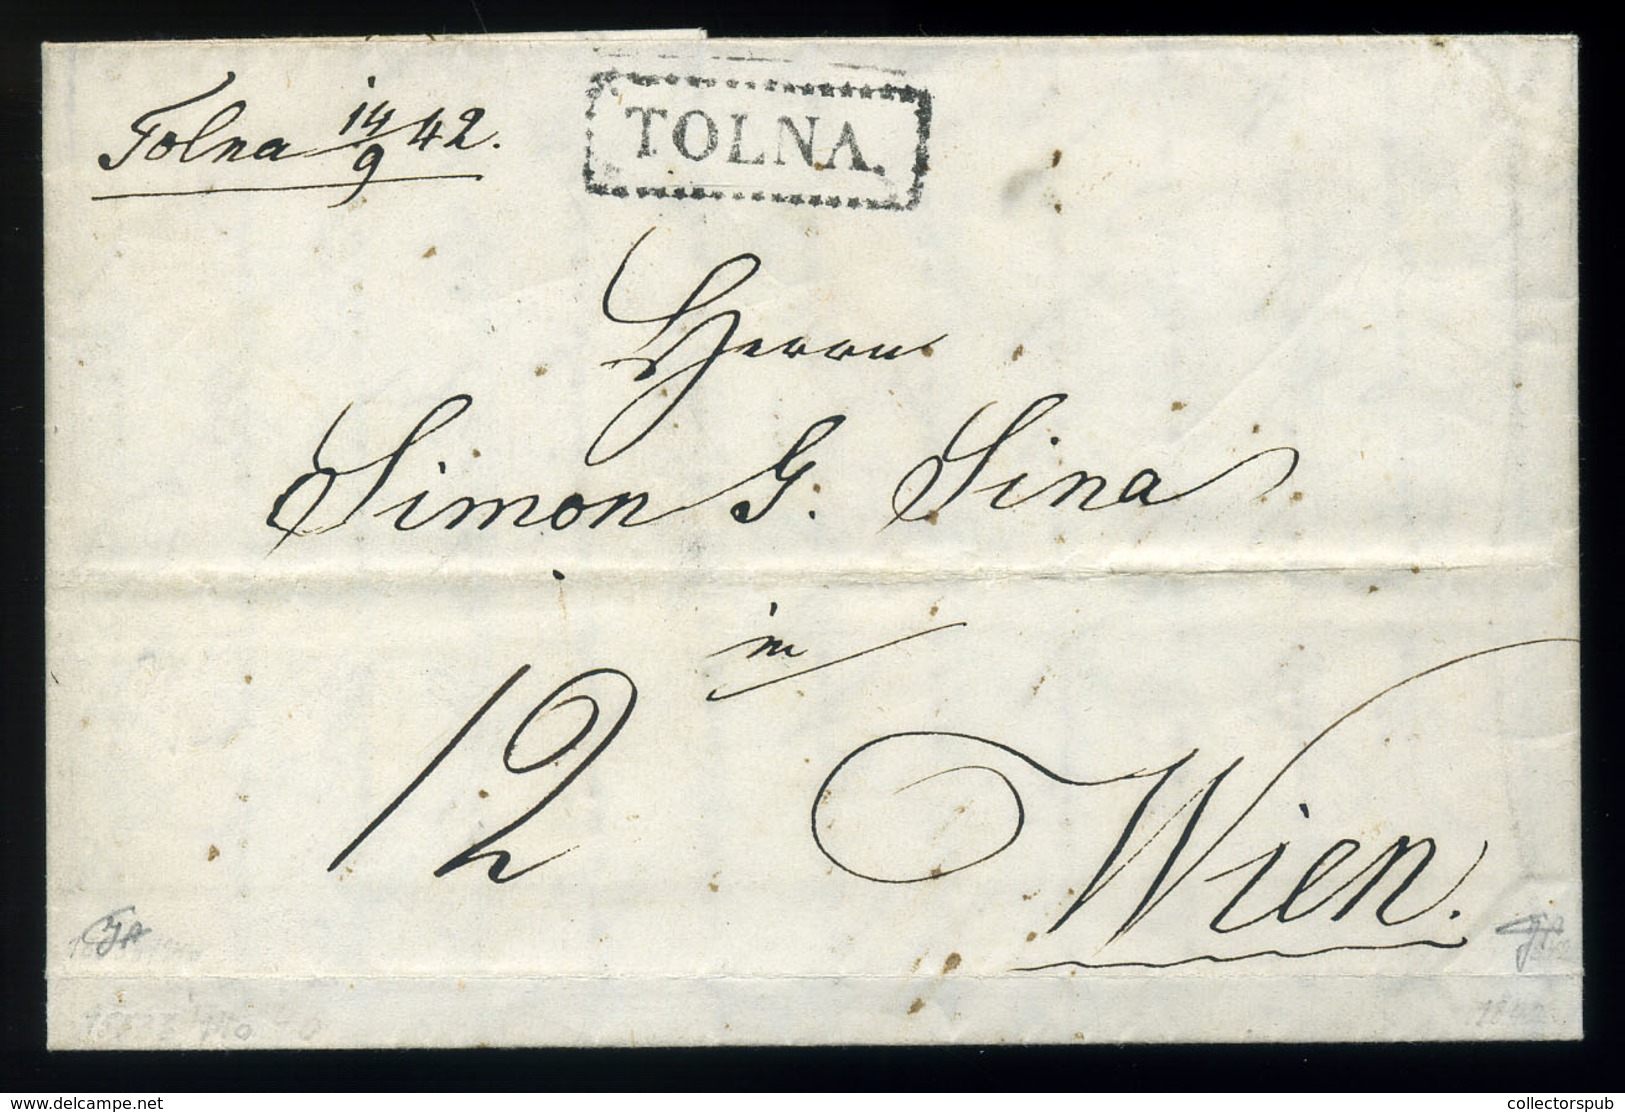 Tolna 14/9 42.
TOLNA.
Herrn
Simon G. Sina
in
12
Wien.
1842
www.delcampe.net
collectorspub